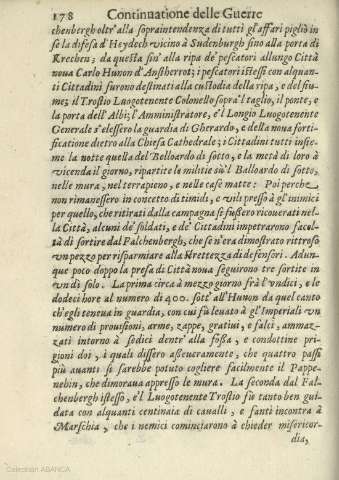 178 Continuatione delle Guerre
chenbergh oltr' alla sopraintendenza di tutti gl'affari pigliò in
se la difesa d'Heydech vicino à Sudenburgh sino alla porta di
Krechen; da questa sin' alla ripa de' pescatori allungo Città
noua Carlo Hunon d'Anstherrot; i pescatori istessi con alquan-
ti Cittadini furono destinati alla custodia della ripa, e del fiu-
me; il Trostio Luogotenente Colonello sopra'l taglio, il ponte, e
la porta dell' Albi; l'Amministratore, e'l Longio Luogotenente
Generale s'elessero la guardia di Gherardo, e della noua forti-
ficatione dietro alla Chiesa Cathedrale; i Cittadini tutti insie-
me la notte quella del Belloardo di sotto, e la metà di loro à
vicenda il giorno, ripartite le militie sù'l Balloardo di sotto,
nelle mura, nel terrapieno, e nelle case matte: Poi perche
non rimanessero in concetto di timidi, e vili presso à gl'inimici
per quello, che ritirati dalla campagna se fussero ricouerati nel-
la Città, alcuni de' soldati, e de' Cittadini impetrarono facol-
tà di sortire dal Falchenbergh, che se n'era dimostrato ritroso
vn pezzo per risparmiare alla strettezza di defensori. Adun-
que poco doppo la presa di Città noua seguirono tre sortite in
vn dì solo. La prima circa à mezzo giorno frà l'vndici, e le
dodeci hore al numero di 400. sott' all'Hunon da quel canto
ch'egli teneua in guardia, con cui fù leuato à gl'Imperiali vn
numero di prouisioni, arme, zappe, gratiui, e falci, ammaz-
zati intorno à sedici dentr' alla fossa, e condottine pri-
gioni doi, i quali dissero asseuramente, che quattro passi
più auanti si sarebbe potuto cogliere facilmente il Pappe-
nehin, che dimoraua appresso le mura. La seconda dal Fal-
chenbergh istesso, e'l Luogotenente Trostio fù tanto ben gui-
data con alquanti centinaia di caualli, e fanti incontra à
Marschia, che i nemici comingiarono à chieder misericor-
dia,
Colección ABANCA